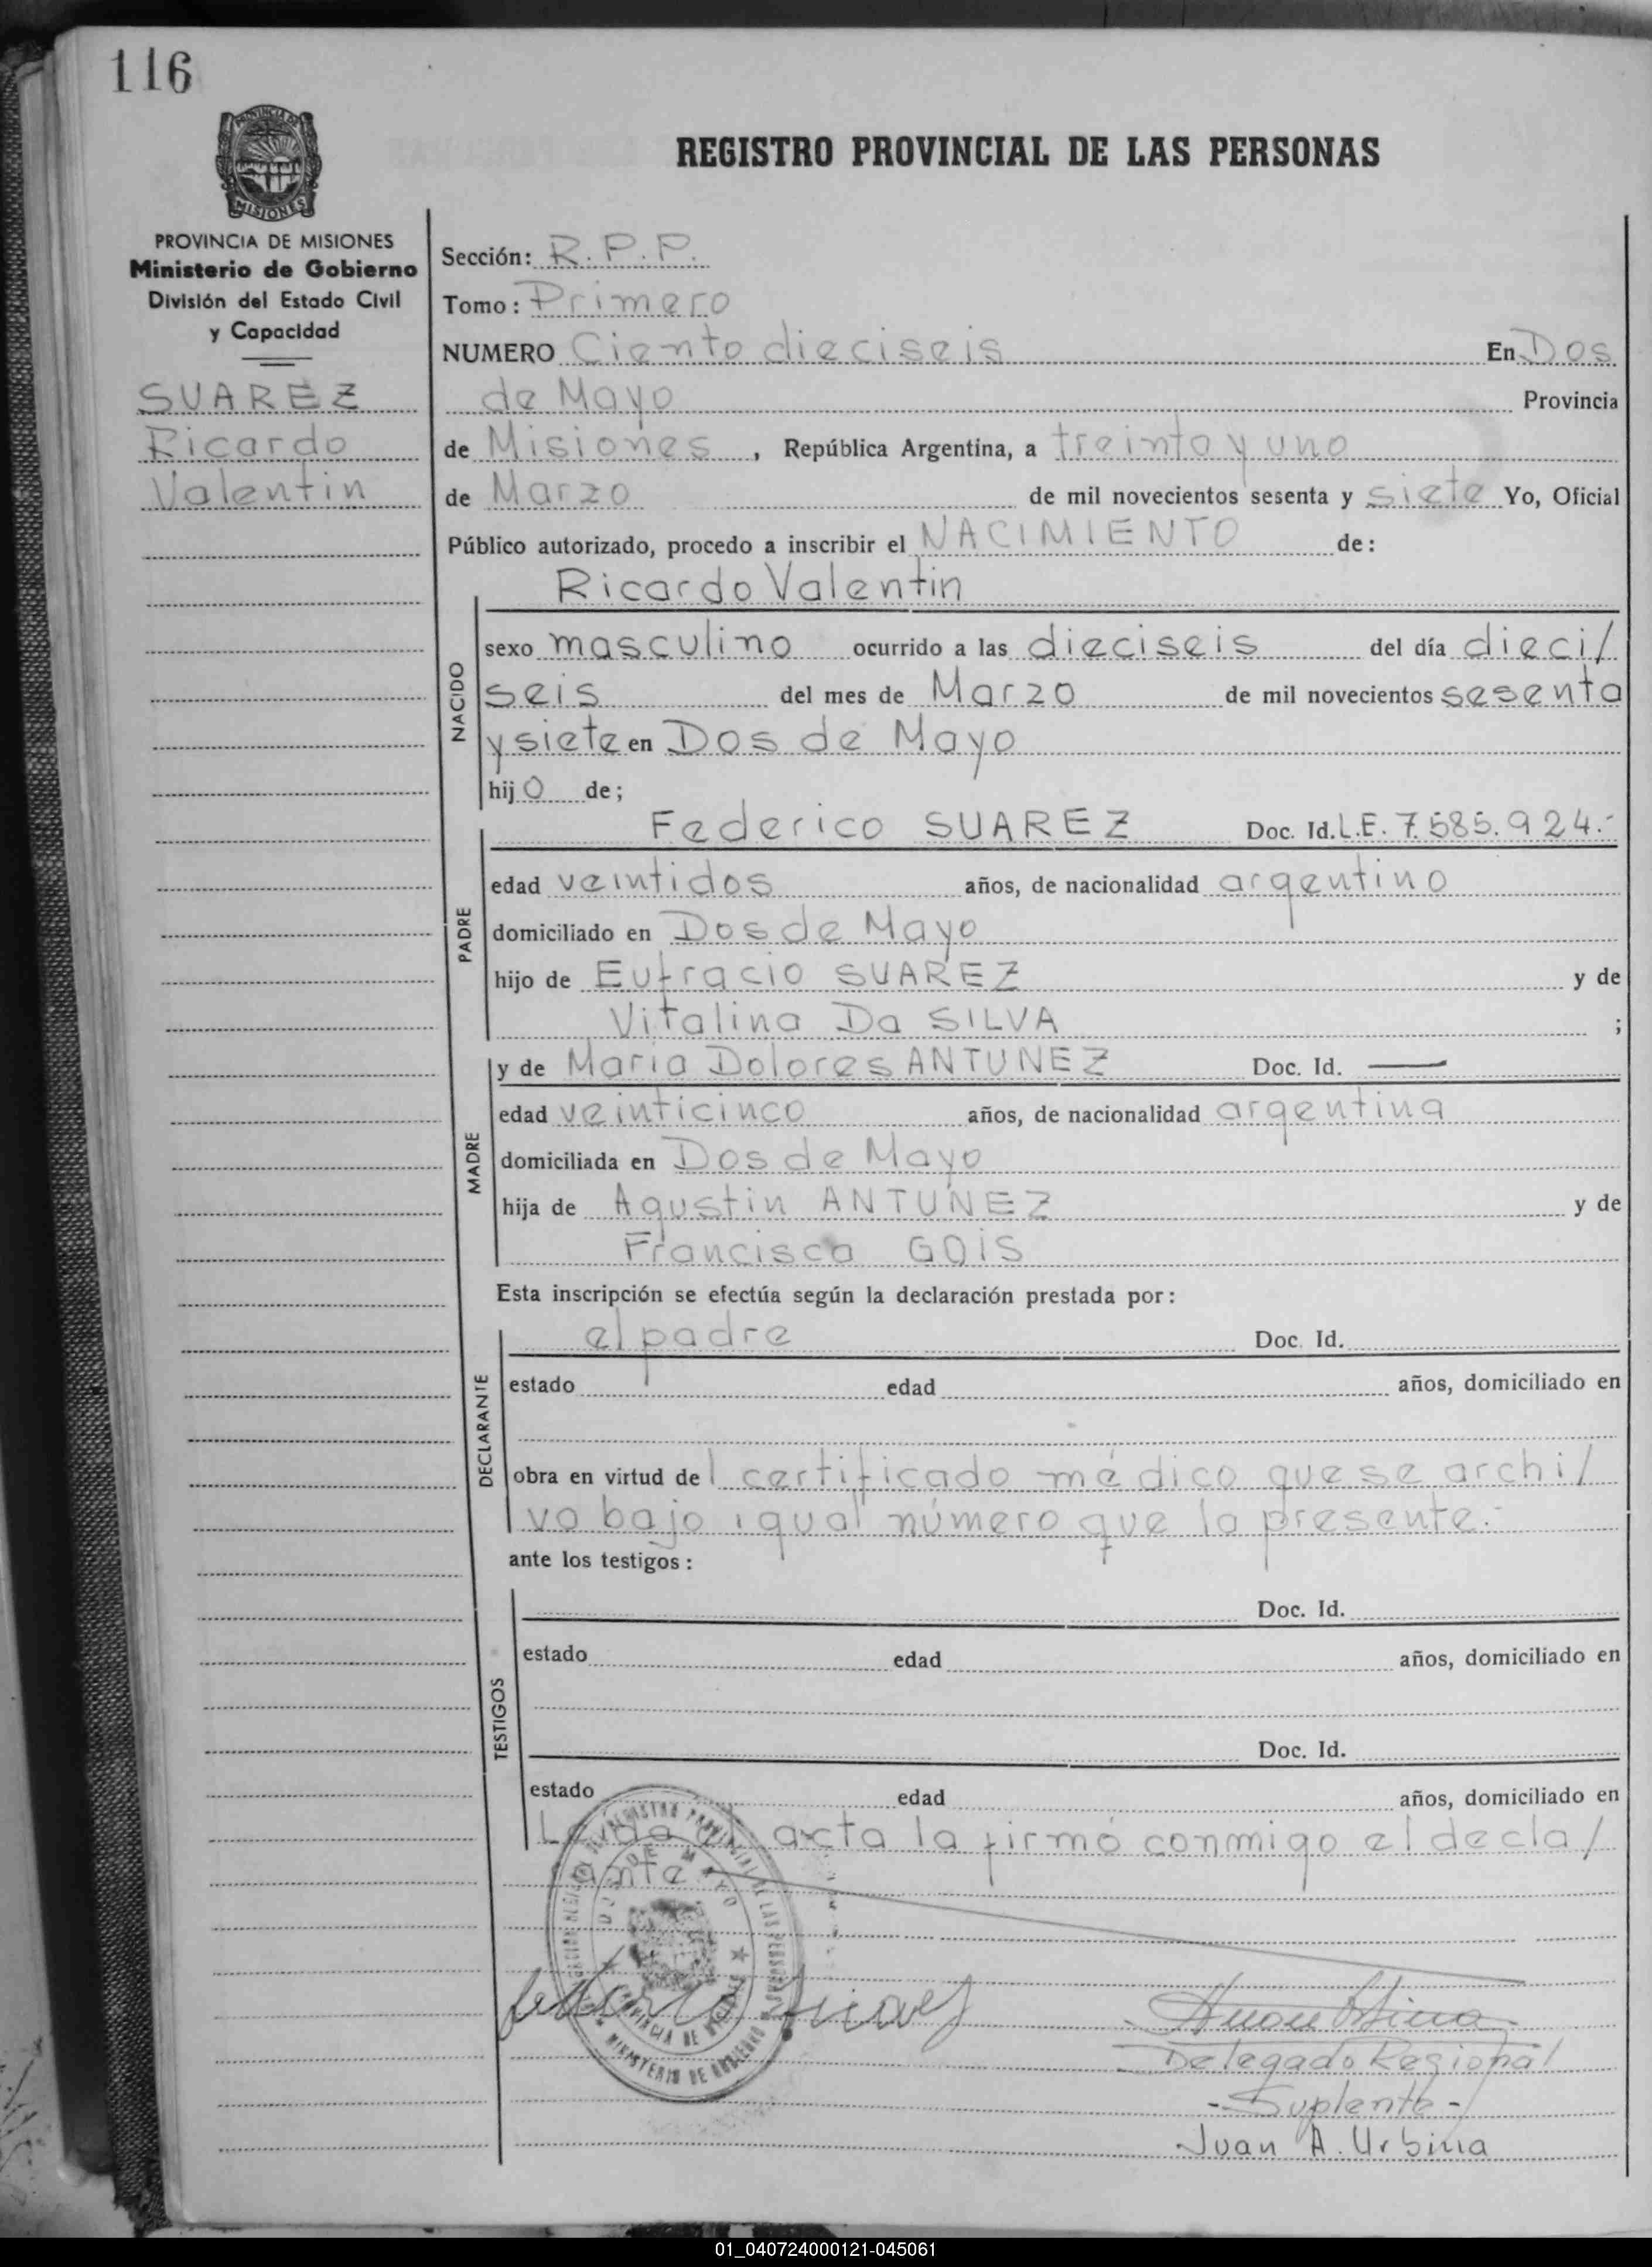 116
PROVINCIA DE
MISIONES
REGISTRO PROVINCIAL DE LAS PERSONAS
PROVINCIA DE MISIONES
Ministerio de Gobierno
División del Estado Civil
y Capacidad
SUAREZ
Ricardo
Valentin
Sección: R.P.P.
Tomo: Primero
NUMERO Ciento dieciseis En Dos
de Mayo Provincia
de Misiones, República Argentina, a treinta y uno
de Marzo de mil novecientos sesenta y siete Yo, Oficial
Público autorizado, procedo a inscribir el NACIMIENTO de:
Ricardo Valentin
NACIDO
sexo masculino ocurrido a las dieciseis del día dieci/
seis del mes de Marzo de mil novecientos sesenta
y siete en Dos de Mayo
hijo de;
PADRE
Federico SUAREZ Doc. Id. L.E. 7.585.924.-
edad veintidos años, de nacionalidad argentino
domiciliado en Dos de Mayo
hijo de Eufracio SUAREZ y de
Vitalina Da SILVA ;
MADRE
y de Maria Dolores ANTUNEZ Doc. Id. —
edad veinticinco años, de nacionalidad argentina
domiciliada en Dos de Mayo
hija de Agustin ANTUNEZ y de
Francisca GOIS
Esta inscripción se efectúa según la declaración prestada por:
DECLARANTE
el padre Doc. Id.
estado edad años, domiciliado en
obra en virtud del certificado médico que se archi/
vo bajo igual número que la presente.-
ante los testigos:
TESTIGOS
Doc. Id.
estado edad años, domiciliado en
Doc. Id.
estado edad años, domiciliado en
acta la firmó conmigo el decla/
rante
DOS DE MAYO
PROVINCIA DE MISIONES
MINISTERIO DE GOBIERNO
Delegado Regional
- Suplente -
Juan A. Urbina
01_040724000121-045061